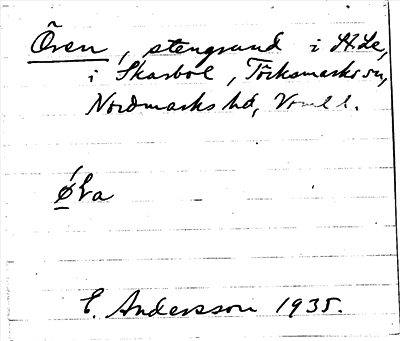 Ören, stengrund i St Le,
i Skarbol, Töcksmarks sn,
Nordmarks hd, Vrml l.
E. Andersson 1935.